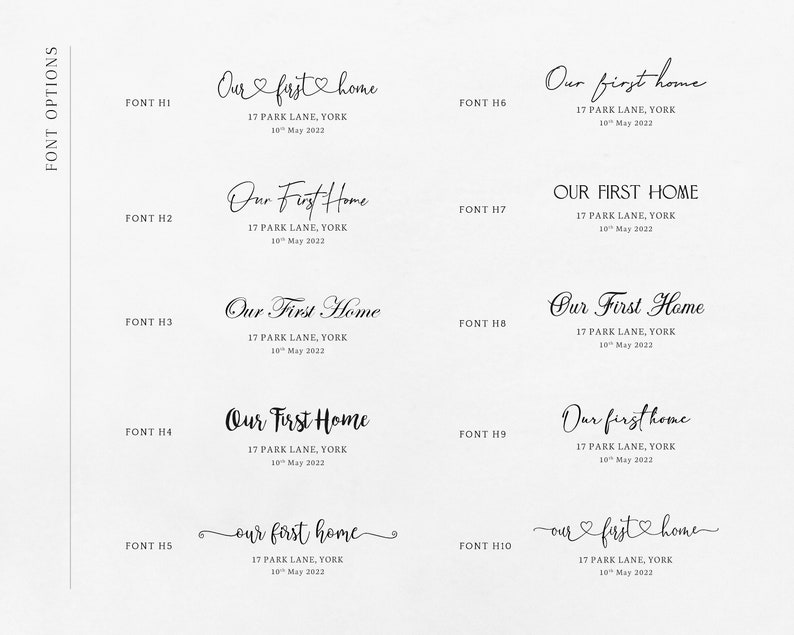 FONT OPTIONS
FONT H1
Our first home
17 PARK LANE, YORK
10th May 2022
FONT H2
Our First Home
17 PARK LANE, YORK
10th May 2022
FONT H3
Our First Home
17 PARK LANE, YORK
10th May 2022
FONT H4
Our First Home
17 PARK LANE, YORK
10th May 2022
FONT H5
our first home
17 PARK LANE, YORK
10th May 2022
FONT H6
Our first home
17 PARK LANE, YORK
10th May 2022
FONT H7
OUR FIRST HOME
17 PARK LANE, YORK
10th May 2022
FONT H8
Our First Home
17 PARK LANE, YORK
10th May 2022
FONT H9
Our first home
17 PARK LANE, YORK
10th May 2022
FONT H10
our first home
17 PARK LANE, YORK
10th May 2022